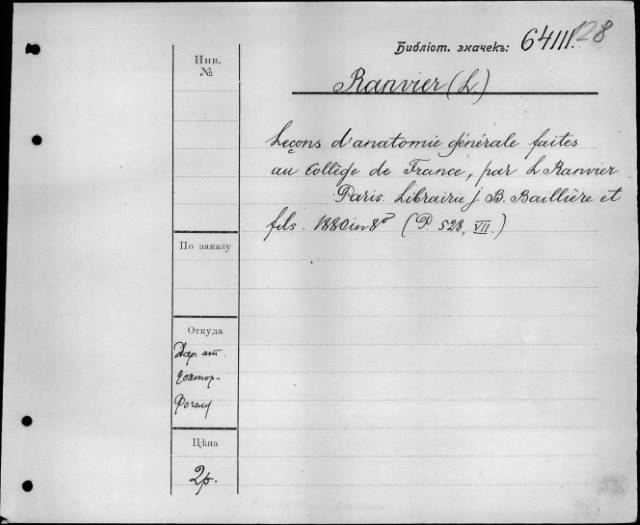 Библіот. значекъ: 64111.128
Инв.
№
Ranvier (L.)
Leçons d'anatomie générale faites
au Collège de France, par L Ranvier
Paris. Librairie J. B. Baillière et
fils. 1880 in 8º (P. 528, VII.)
По заказу
Откуда
Цѣна
2р.